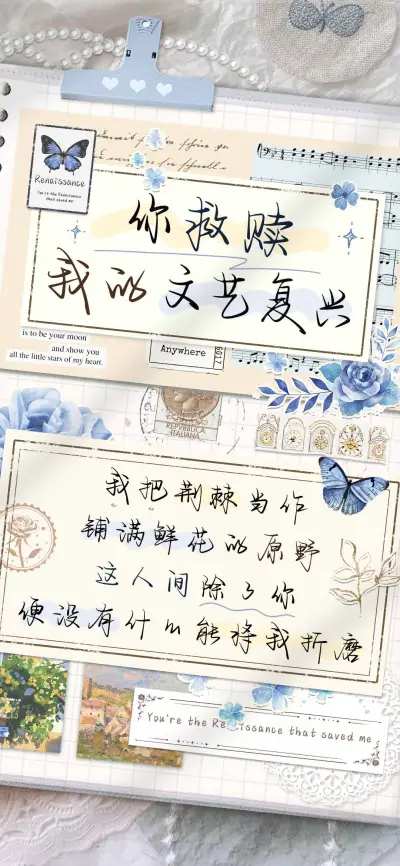 Renaissance
You're the Renaissance
that saved me
你救赎
我的文艺复兴
is to be your moon
and show you
all the little stars of my heart.
Anywhere
6017
REPVBBLICA
ITALIANA
我把荆棘当作
铺满鲜花的原野
这人间除了你
便没有什么能将我折磨
You're the Re issance that saved me